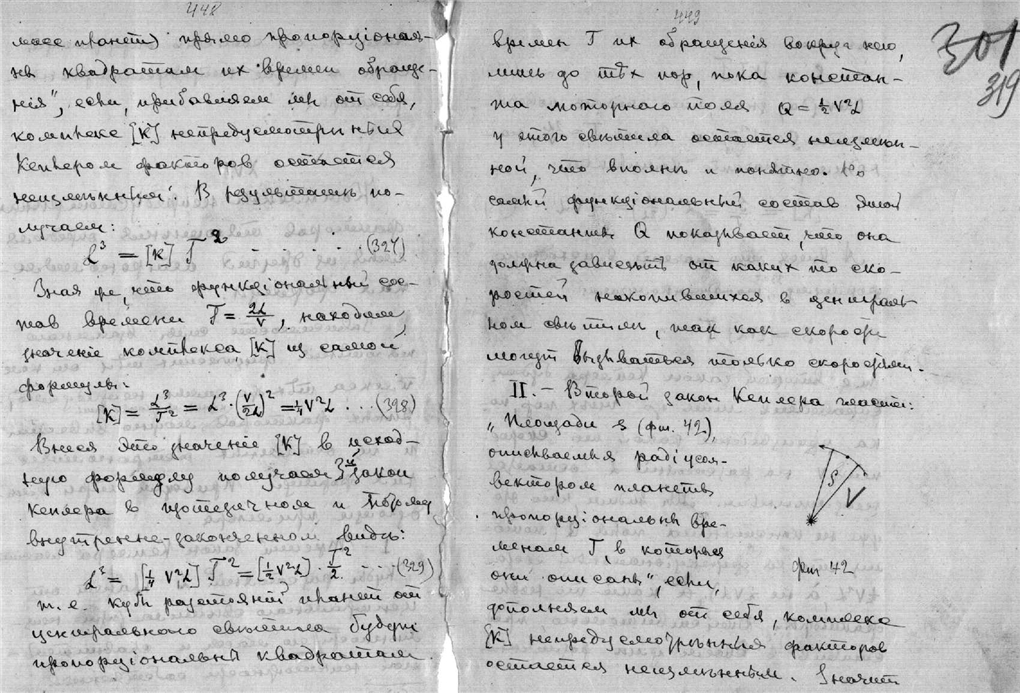 448
масс планет) прямо пропорціонал-
ны квадратам их времен обраще-
нія", если, прибавляем мы от себя,
комплекс [K] непредусмотрѣнныя
Кеплером факторов остается
неизмѣнным. В результатѣ по-
лучаем:
L³ = [K] T² . . . . . (327)
Зная же, что функціональный сос-
тав времени T = 2L/V, находим
значеніе комплекса [K] из самой
формулы:
[K] = L³/T² = L³·(V/2L)² = ¼V²L . . . (328)
Внеся это значеніе [K] в исход-
ную формулу получаем 3й закон
Кеплера в
внутренне-законченном видѣ:
L³ = [¼ V²L] T² = [½V²L] · T²/2 . . . (329)
т. е. кубы разстояній планет от
центральнаго свѣтила будут
пропорціональны квадратам
449
301
319
времен T их обращенія вокруг него,
лишь до тѣх пор, пока констан-
та моторнаго поля Q = ½V²L
у этого свѣтила остается неизмѣн-
ной, что вполнѣ и понятно. Но
самый функціональный состав этой
константы Q показывает, что она
должна зависѣть от каких то ско-
ростей накопившихся в централь-
ном свѣтилѣ, так как скорости
могут вызываться только скоростями.
II. – Второй закон Кеплера гласит:
„Площади S (фиг. 42),
описываемыя радіусом-
вектором планеты
пропорціональны вре-
менам T, в которыя
они описаны", если,
S
V
фиг 42
дополняем мы от себя, комплекс
[K] непредусмотрѣнныя факторов
остается неизмѣнным. Значит